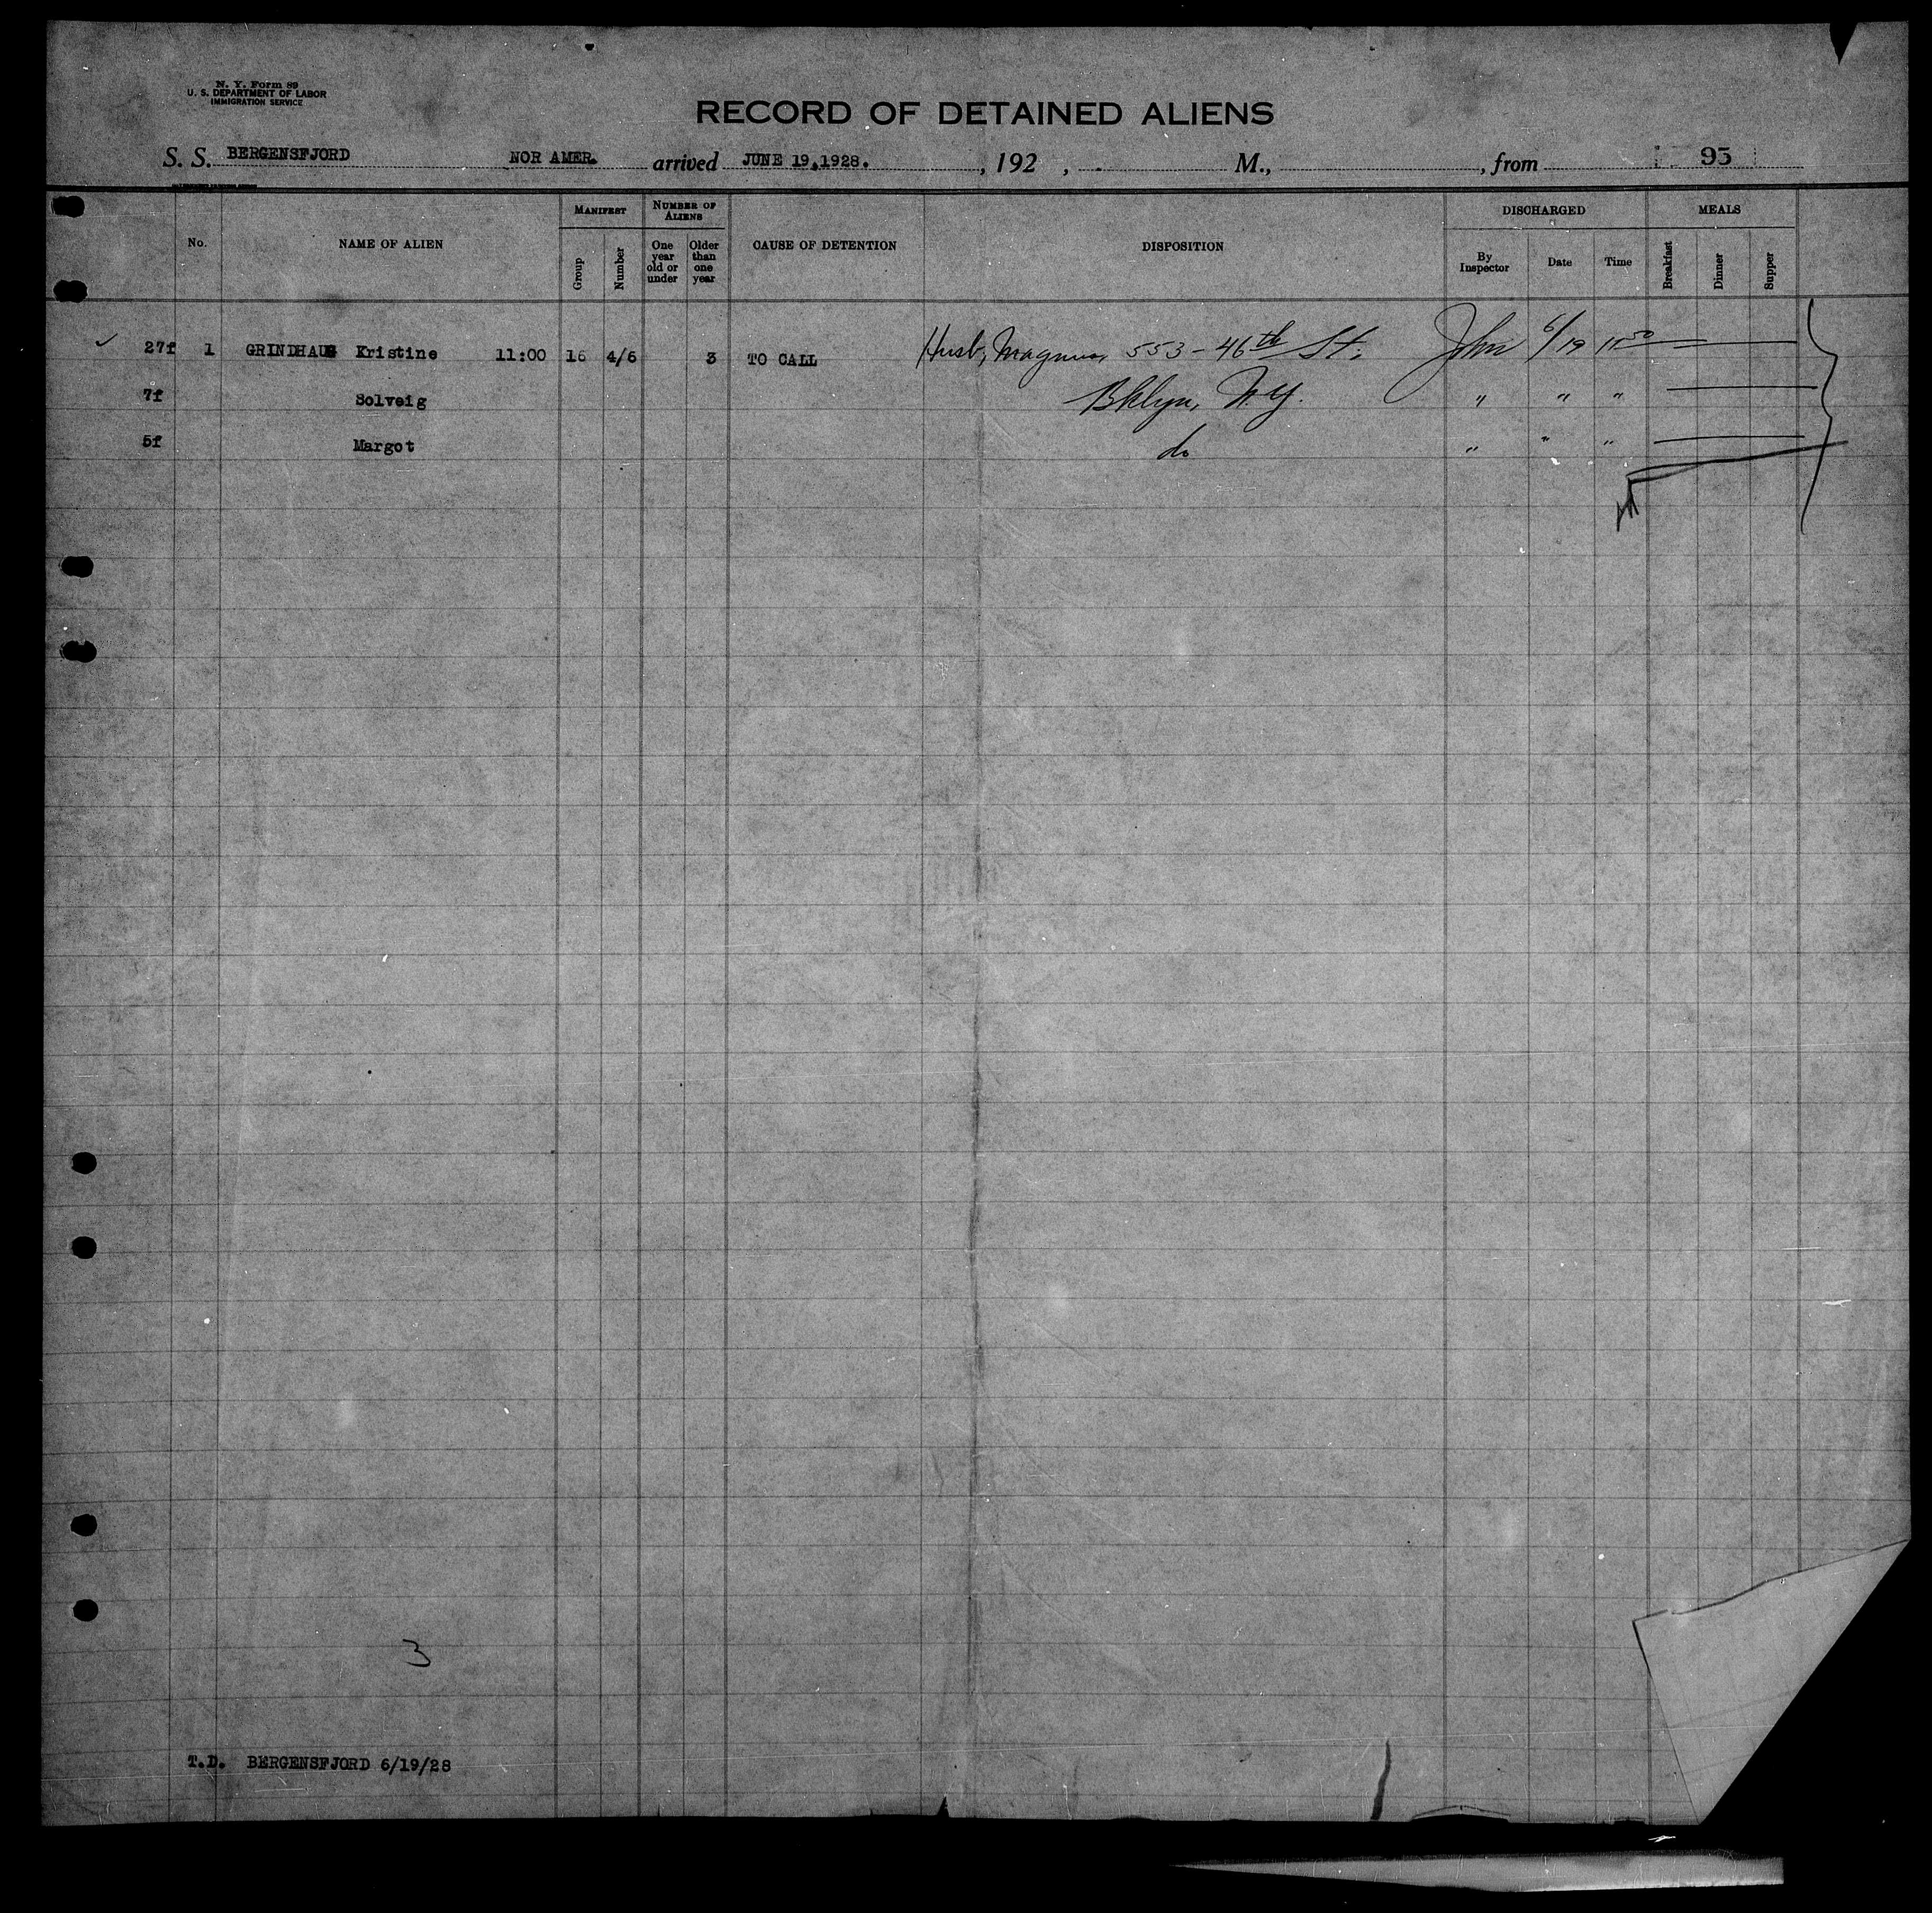 N. Y. Form 89
U. S. DEPARTMENT OF LABOR
IMMIGRATION SERVICE
RECORD OF DETAINED ALIENS
S. S. BERGENSFJORD NOR AMER. arrived JUNE 19,1928. , 192 , M., , from 95
No. NAME OF ALIEN MANIFEST Group Number NUMBER OF ALIENS One year old or under Older than one year CAUSE OF DETENTION DISPOSITION DISCHARGED By Inspector Date Time MEALS Breakfast Dinner Supper
27f 1 GRINDHAUG Kristine 11:00 16 4/6 3 TO CALL Husb, Magnus, 553-46th St. John 6/19 11 50
7f Solveig Bklyn, N.Y. " " "
5f Margot do " " "
3
T.D. BERGENSFJORD 6/19/28